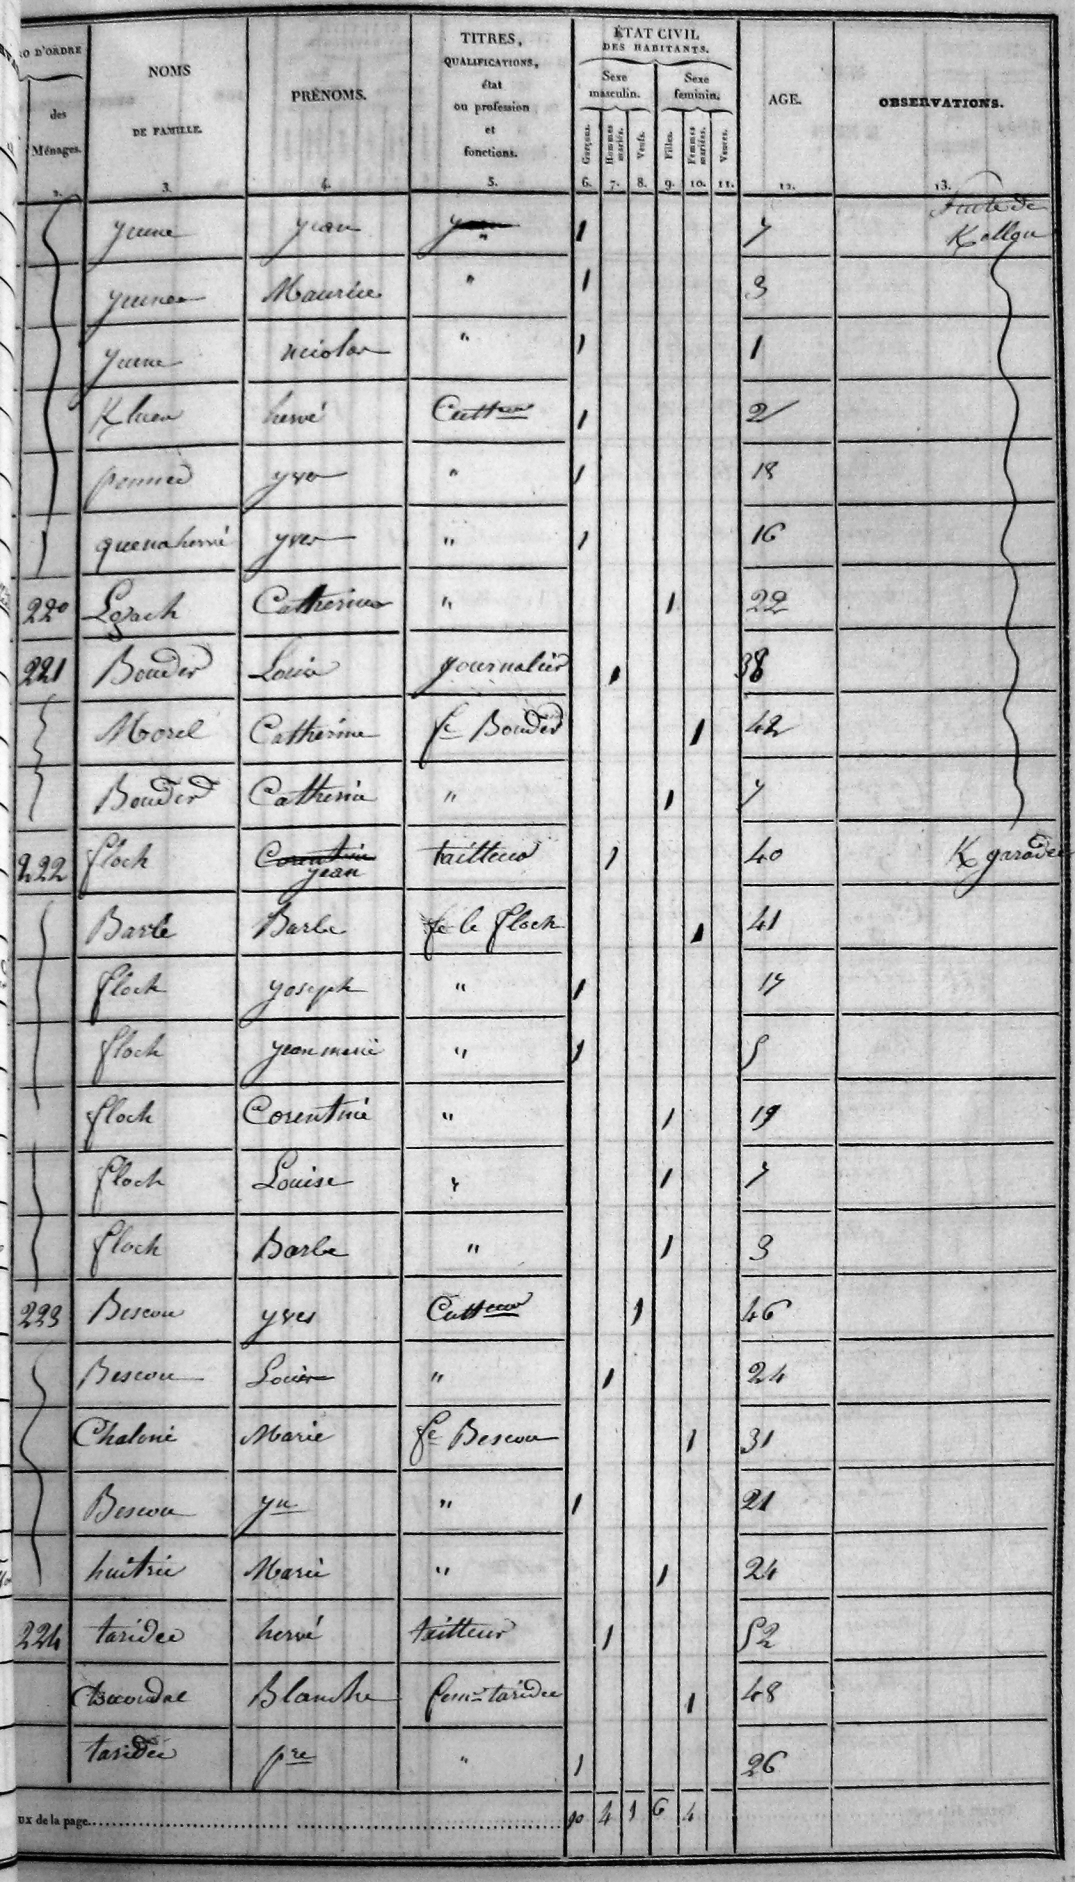 O D'ORDRE
des
Ménages.
NOMS
DE FAMILLE.
PRÉNOMS.
TITRES,
QUALIFICATIONS,
état
ou profession
et
fonctions.
ÉTAT CIVIL
DES HABITANTS.
Sexe masculin.
Sexe feminin.
Garçons. Hommes mariés. Veufs. Filles. Femmes mariées. Veuves.
AGE.
OBSERVATIONS.
2. 3. 4. 5. 6. 7. 8. 9. 10. 11. 12. 13.
jean " 1 7 Suite de
Maurice " 1 3
" 1 1
hervé Cultteur 1 2
yves " 1 18
quenaherve yves " 1 16
220 Lozach Catherine " 1 22
221 Bouder Louis journalier 1 38
Morel Catherine fe Bouder 1 42
Bouder Catherine " 1 7
222 floch Corentine jean tailleur 1 40
Barbe Barbe fe le floch 1 41
floch yoseph " 1 17
floch " 1 5
floch Corentine " 1 19
floch Louise " 1 7
floch Barbe " 1 3
223 Bescou yves Cultteur 1 46
Bescou Louis " 1 24
Marie fe Bescou 1 31
Bescou yn " 1 21
Marie " 1 24
224 taridec hervé tailleur 1 52
Blanche fem taridec 1 48
taridec pre " 1 26
ux de la page 10 4 1 6 4